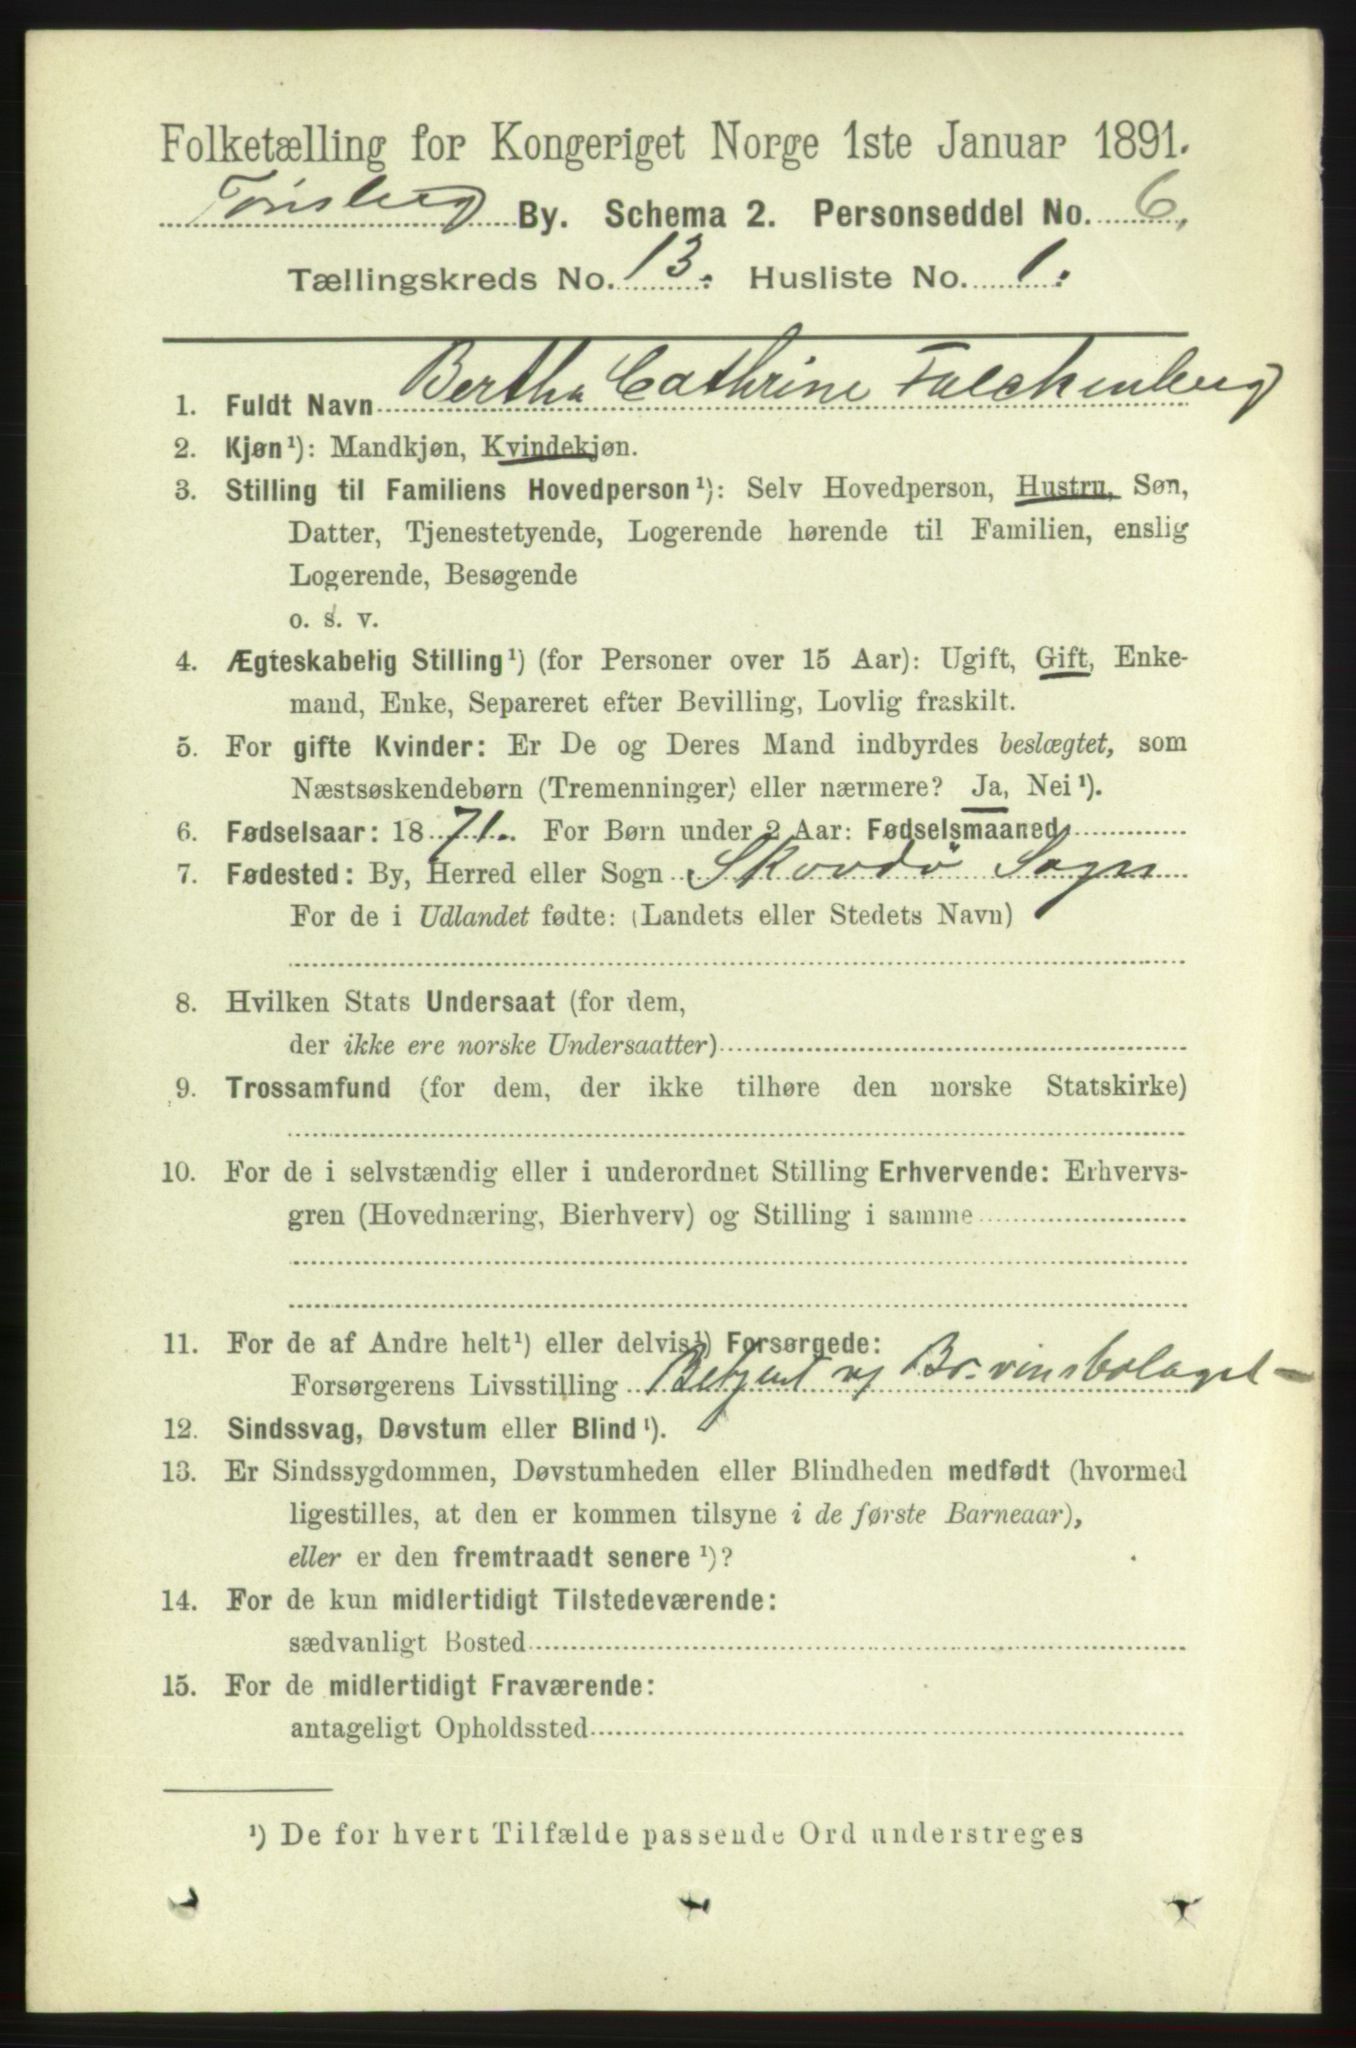 Folketælling for Kongeriget Norge 1ste Januar 1891.
Tønsberg By. Schema 2. Personseddel No. 6.
Tællingskreds No. 13. Husliste No. 1.
1. Fuldt Navn Bertha Cathrine Falckenberg
2. Kjøn¹): Mandkjøn, Kvindekjøn.
3. Stilling til Familiens Hovedperson¹): Selv Hovedperson, Hustru, Søn,
Datter, Tjenestetyende, Logerende hørende til Familien, enslig
Logerende, Besøgende
o. s. v.
4. Ægteskabelig Stilling¹) (for Personer over 15 Aar): Ugift, Gift, Enke-
mand, Enke, Separeret efter Bevilling, Lovlig fraskilt.
5. For gifte Kvinder: Er De og Deres Mand indbyrdes beslægtet, som
Næstsøskendebørn (Tremenninger) eller nærmere? Ja, Nei¹).
6. Fødselsaar: 1871. For Børn under 2 Aar: Fødselsmaaned
7. Fødested: By, Herred eller Sogn Skovdø Sogn
For de i Udlandet fødte: (Landets eller Stedets Navn)
8. Hvilken Stats Undersaat (for dem,
der ikke ere norske Undersaatter)
9. Trossamfund (for dem, der ikke tilhøre den norske Statskirke)
10. For de i selvstændig eller i underordnet Stilling Erhvervende: Erhvervs-
gren (Hovednæring, Bierhverv) og Stilling i samme
11. For de af Andre helt¹) eller delvis¹) Forsørgede:
Forsørgerens Livsstilling Betjent v/ Br.vinsbolaget
12. Sindssvag, Døvstum eller Blind¹).
13. Er Sindssygdommen, Døvstumheden eller Blindheden medfødt (hvormed
ligestilles, at den er kommen tilsyne i de første Barneaar),
eller er den fremtraadt senere¹)?
14. For de kun midlertidigt Tilstedeværende:
sædvanligt Bosted
15. For de midlertidigt Fraværende:
antageligt Opholdssted
¹) De for hvert Tilfælde passende Ord understreges